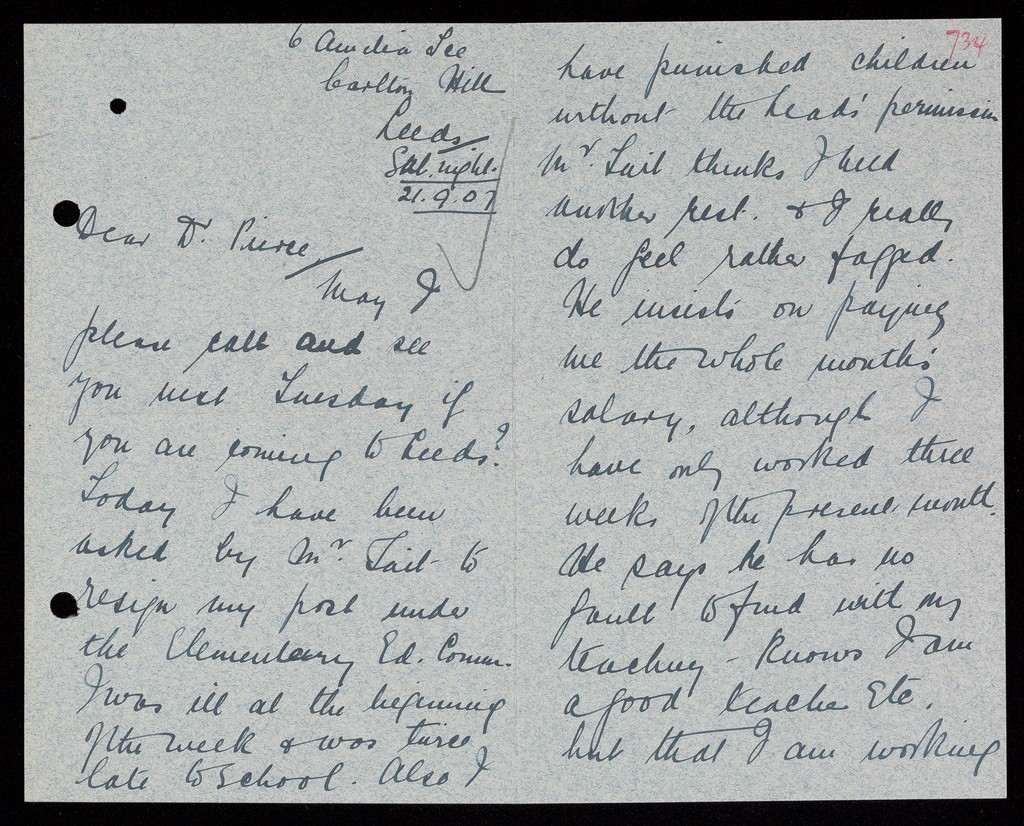 6 Amelia Tce
Carlton Hill
Leeds
Sat. night.
21.9.07
Dear Dr. Pierce,
May I
please call and see
you next Tuesday if
you are coming to Leeds?
Today I have been
asked by Mr Tait to
resign my post under
the Elementary Ed. Comm.
I was ill at the beginning
of the week & was twice
late to school. Also I
734
have punished children
without the heads' permission
Mr. Tait thinks I need
another rest. & I really
do feel rather fagged.
He insists on paying
me the whole month's
salary, although I
have only worked three
weeks of the present month.
He says he has no
fault to find with my
teaching - knows I am
a good teacher Etc,
but that I am working